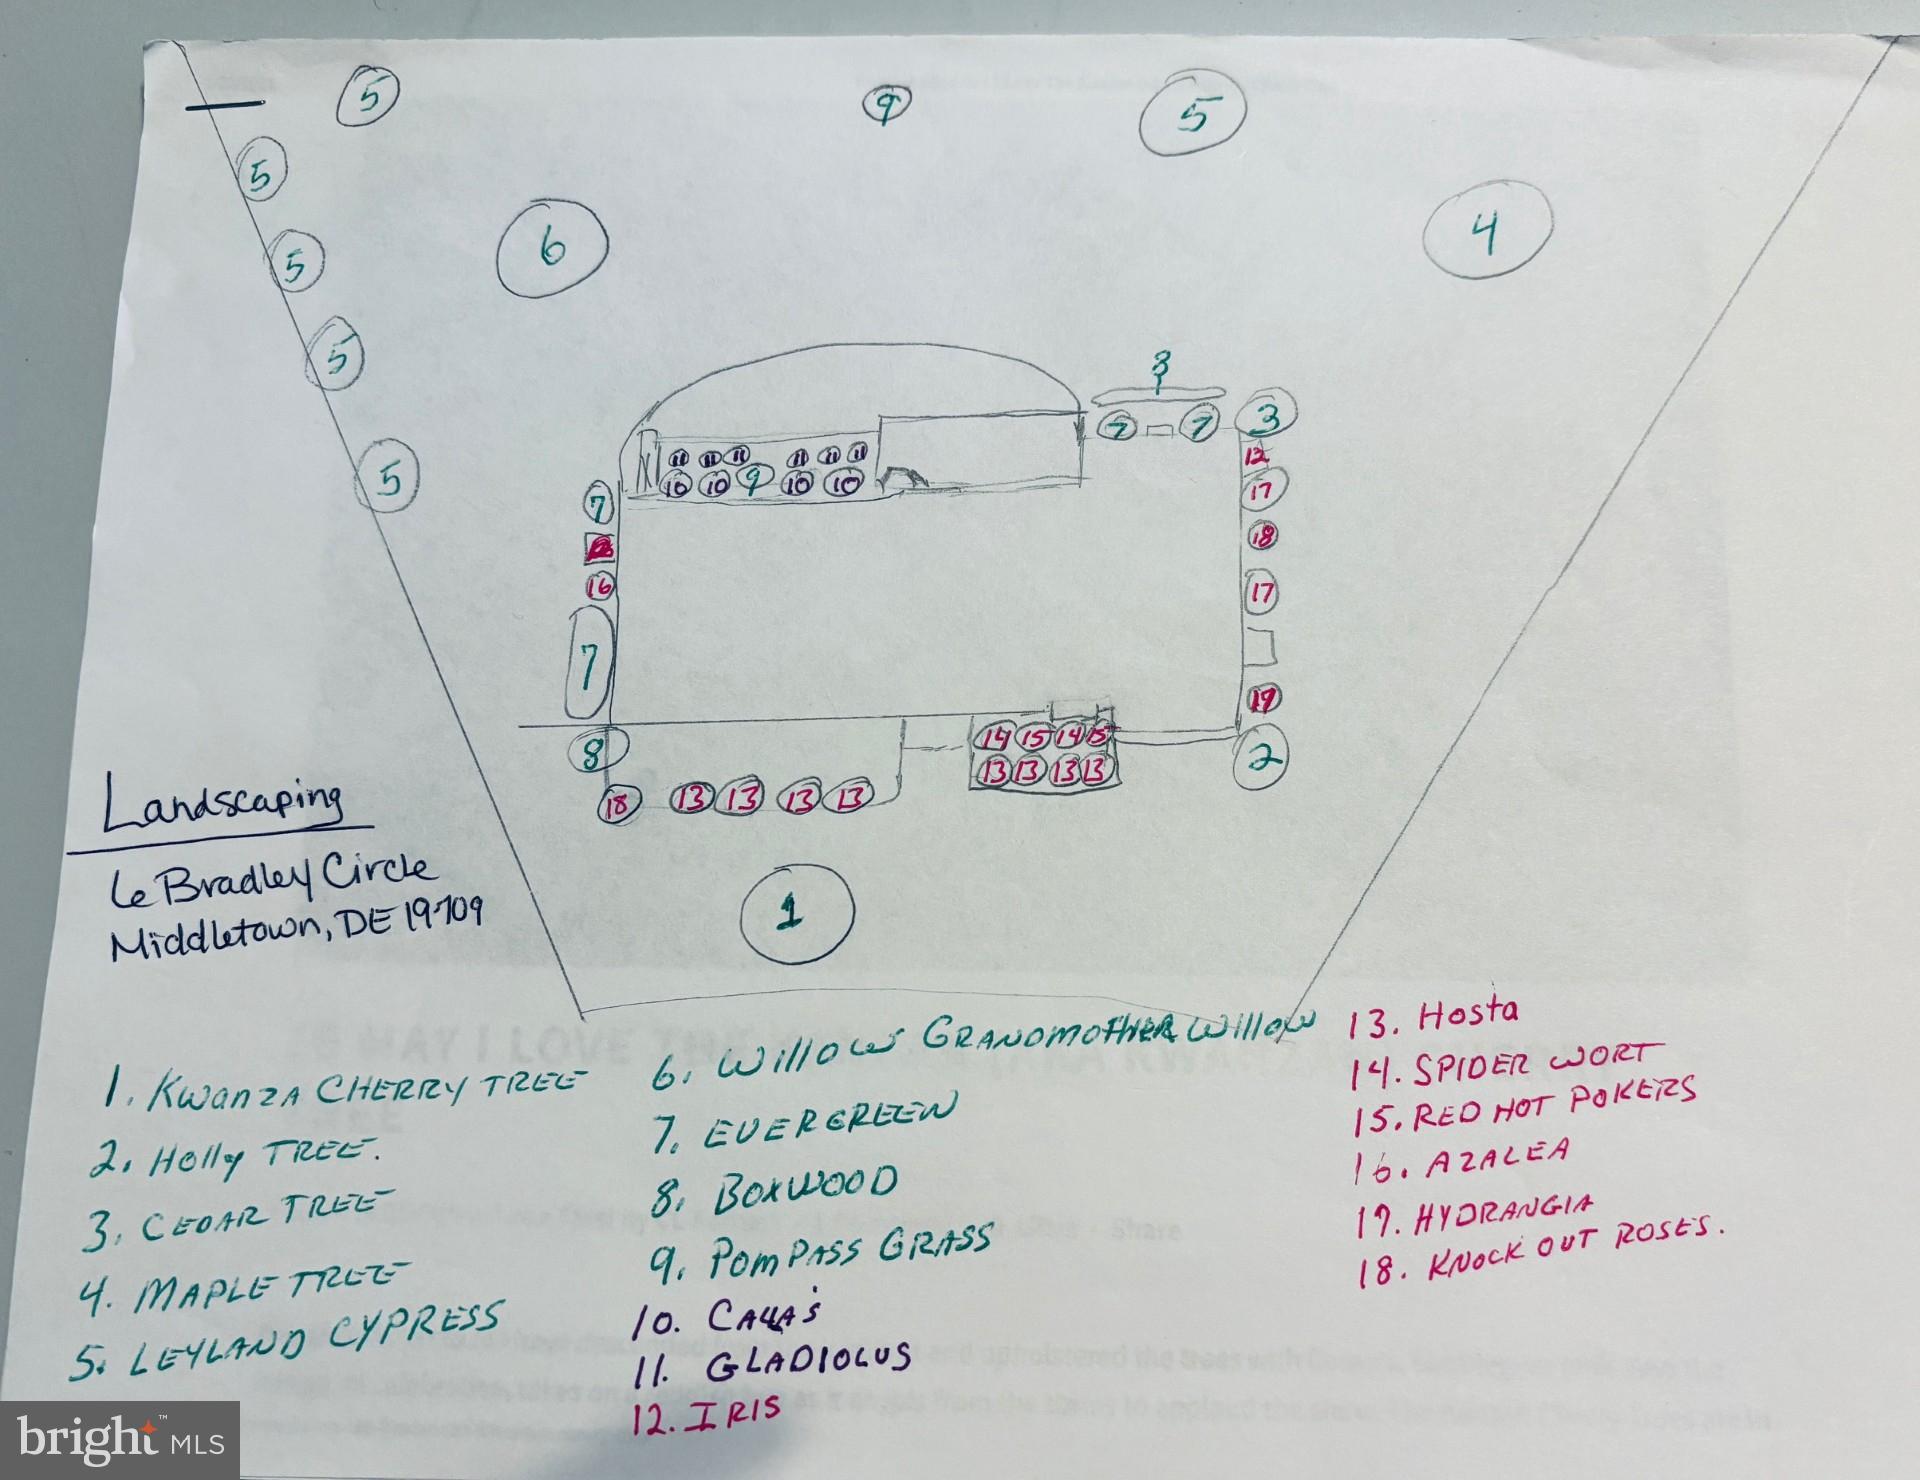 5
9
5
5
6
4
5
5
3
7 7
3
11 11 11 11 11 11
12
10 10 9 10 10
5
17
7
18
16
17
7
19
14 15 14 15
8
2
13 13 13 13
18 13 13 13 13
Landscaping
6 Bradley Circle
Middletown, DE 19709
1
1. KWANZA CHERRY TREE
2. Holly TREE.
3. CEDAR TREE
4. MAPLE TREE
5. LEYLAND CYPRESS
6. WILLOW GRANDMOTHER Willow
7. EVERGREEN
8. BOXWOOD
9. POMPASS GRASS
10. CALLA'S
11. GLADIOLUS
12. IRIS
13. Hosta
14. SPIDER WORT
15. RED HOT POKERS
16. AZALEA
17. HYDRANGIA
18. KNOCK OUT ROSES.
bright™ MLS